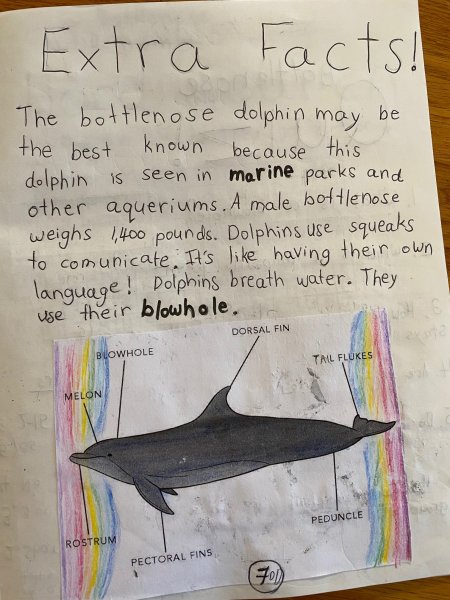 Extra Facts!
The bottlenose dolphin may be
the best known because this
dolphin is seen in marine parks and
other aqueriums. A male bottlenose
weighs 1,400 pounds. Dolphins use squeaks
to comunicate. It's like having their own
language! Dolphins breath water. They
use their blowhole.
DORSAL FIN
BLOWHOLE
TAIL FLUKES
MELON
ROSTRUM
PECTORAL FINS
PEDUNCLE